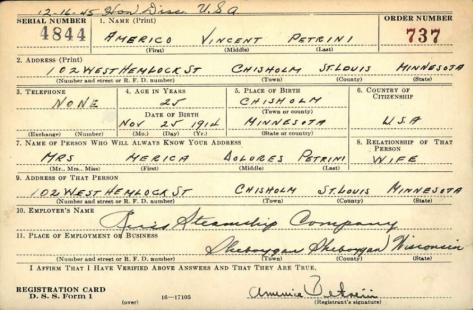 12-16-45 Hon Disc. U.S.A
SERIAL NUMBER 1. NAME (Print) ORDER NUMBER
4844 AMERICO VINCENT PETRINI 737
(First) (Middle) (Last)
2. ADDRESS (Print)
102 WEST HEMLOCK ST CHISHOLM ST. LOUIS MINNESOTA
(Number and street or R. F. D. number) (Town) (County) (State)
3. TELEPHONE 4. AGE IN YEARS 5. PLACE OF BIRTH 6. COUNTRY OF CITIZENSHIP
NONE 25 CHISHOLM
DATE OF BIRTH (Town or county)
NOV 25 1914 MINNESOTA USA
(Exchange) (Number) (Mo.) (Day) (Yr.) (State or country)
7. NAME OF PERSON WHO WILL ALWAYS KNOW YOUR ADDRESS 8. RELATIONSHIP OF THAT PERSON
MRS MERICA DOLORES PETRINI WIFE
(Mr., Mrs., Miss) (First) (Middle) (Last)
9. ADDRESS OF THAT PERSON
102 WEST HEMLOCK ST CHISHOLM ST. LOUIS MINNESOTA
(Number and street or R. F. D. number) (Town) (County) (State)
10. EMPLOYER'S NAME
Reiss Steamship Company
11. PLACE OF EMPLOYMENT OR BUSINESS
Sheboygan Sheboygan Wisconsin
(Number and street or R. F. D. number) (Town) (County) (State)
I AFFIRM THAT I HAVE VERIFIED ABOVE ANSWERS AND THAT THEY ARE TRUE.
REGISTRATION CARD
D. S. S. Form 1 (over) 16—17105 Petrini
(Registrant's signature)